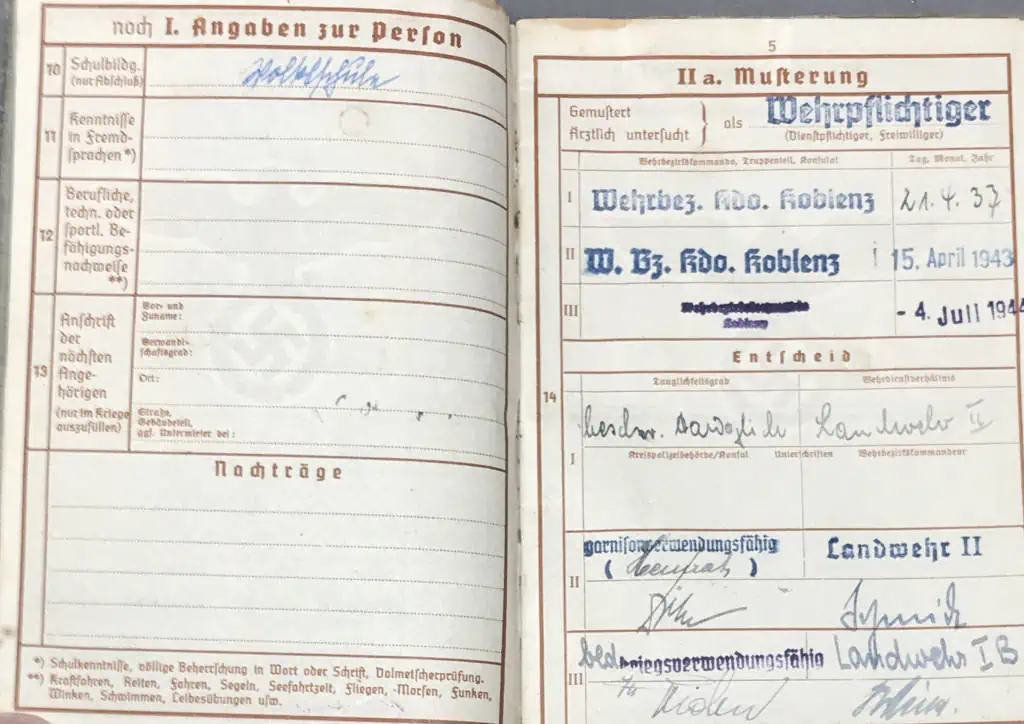 noch I. Angaben zur Person
10 Schulbildg. (nur Abschluß)
Volksschule
11 Kenntnisse in Fremd-
sprachen *)
12 Berufliche,
techn. oder
sportl. Be-
fähigungs-
nachweise
**)
13 Anschrift
der
nächsten
Ange-
hörigen
(nur im Kriege
auszufüllen)
Vor- und
Zuname:
Verwandt-
schaftsgrad:
Ort:
Straße,
Gebäudeteil,
ggf. Untermieter bei:
Nachträge
*) Schulkenntnisse, völlige Beherrschung in Wort oder Schrift, Dolmetscherprüfung.
**) Kraftfahren, Reiten, Fahren, Segeln, Seefahrtzeit, Fliegen, -Morsen, Funken,
Winken, Schwimmen, Leibesübungen usw.
5
IIa. Musterung
Gemustert
Ärztlich untersucht
als Wehrpflichtiger
(Dienstpflichtiger, Freiwilliger)
Wehrbezirkskommando, Truppenteil, Konsulat Tag, Monat, Jahr
I Wehrbez. Kdo. Koblenz 21.4.37
II W. Bz. Kdo. Koblenz 15. April 1943
III Koblenz - 4. Juli 1944
Entscheid
14
Tauglichkeitsgrad Wehrdienstverhältnis
I Landwehr II
Kreispolizeibehörde/Konsul Unterschriften Wehrbezirkskommandeur
II garnisonverwendungsfähig Landwehr II
(Heimat)
Schmidt
III bed. kriegsverwendungsfähig Landwehr I B